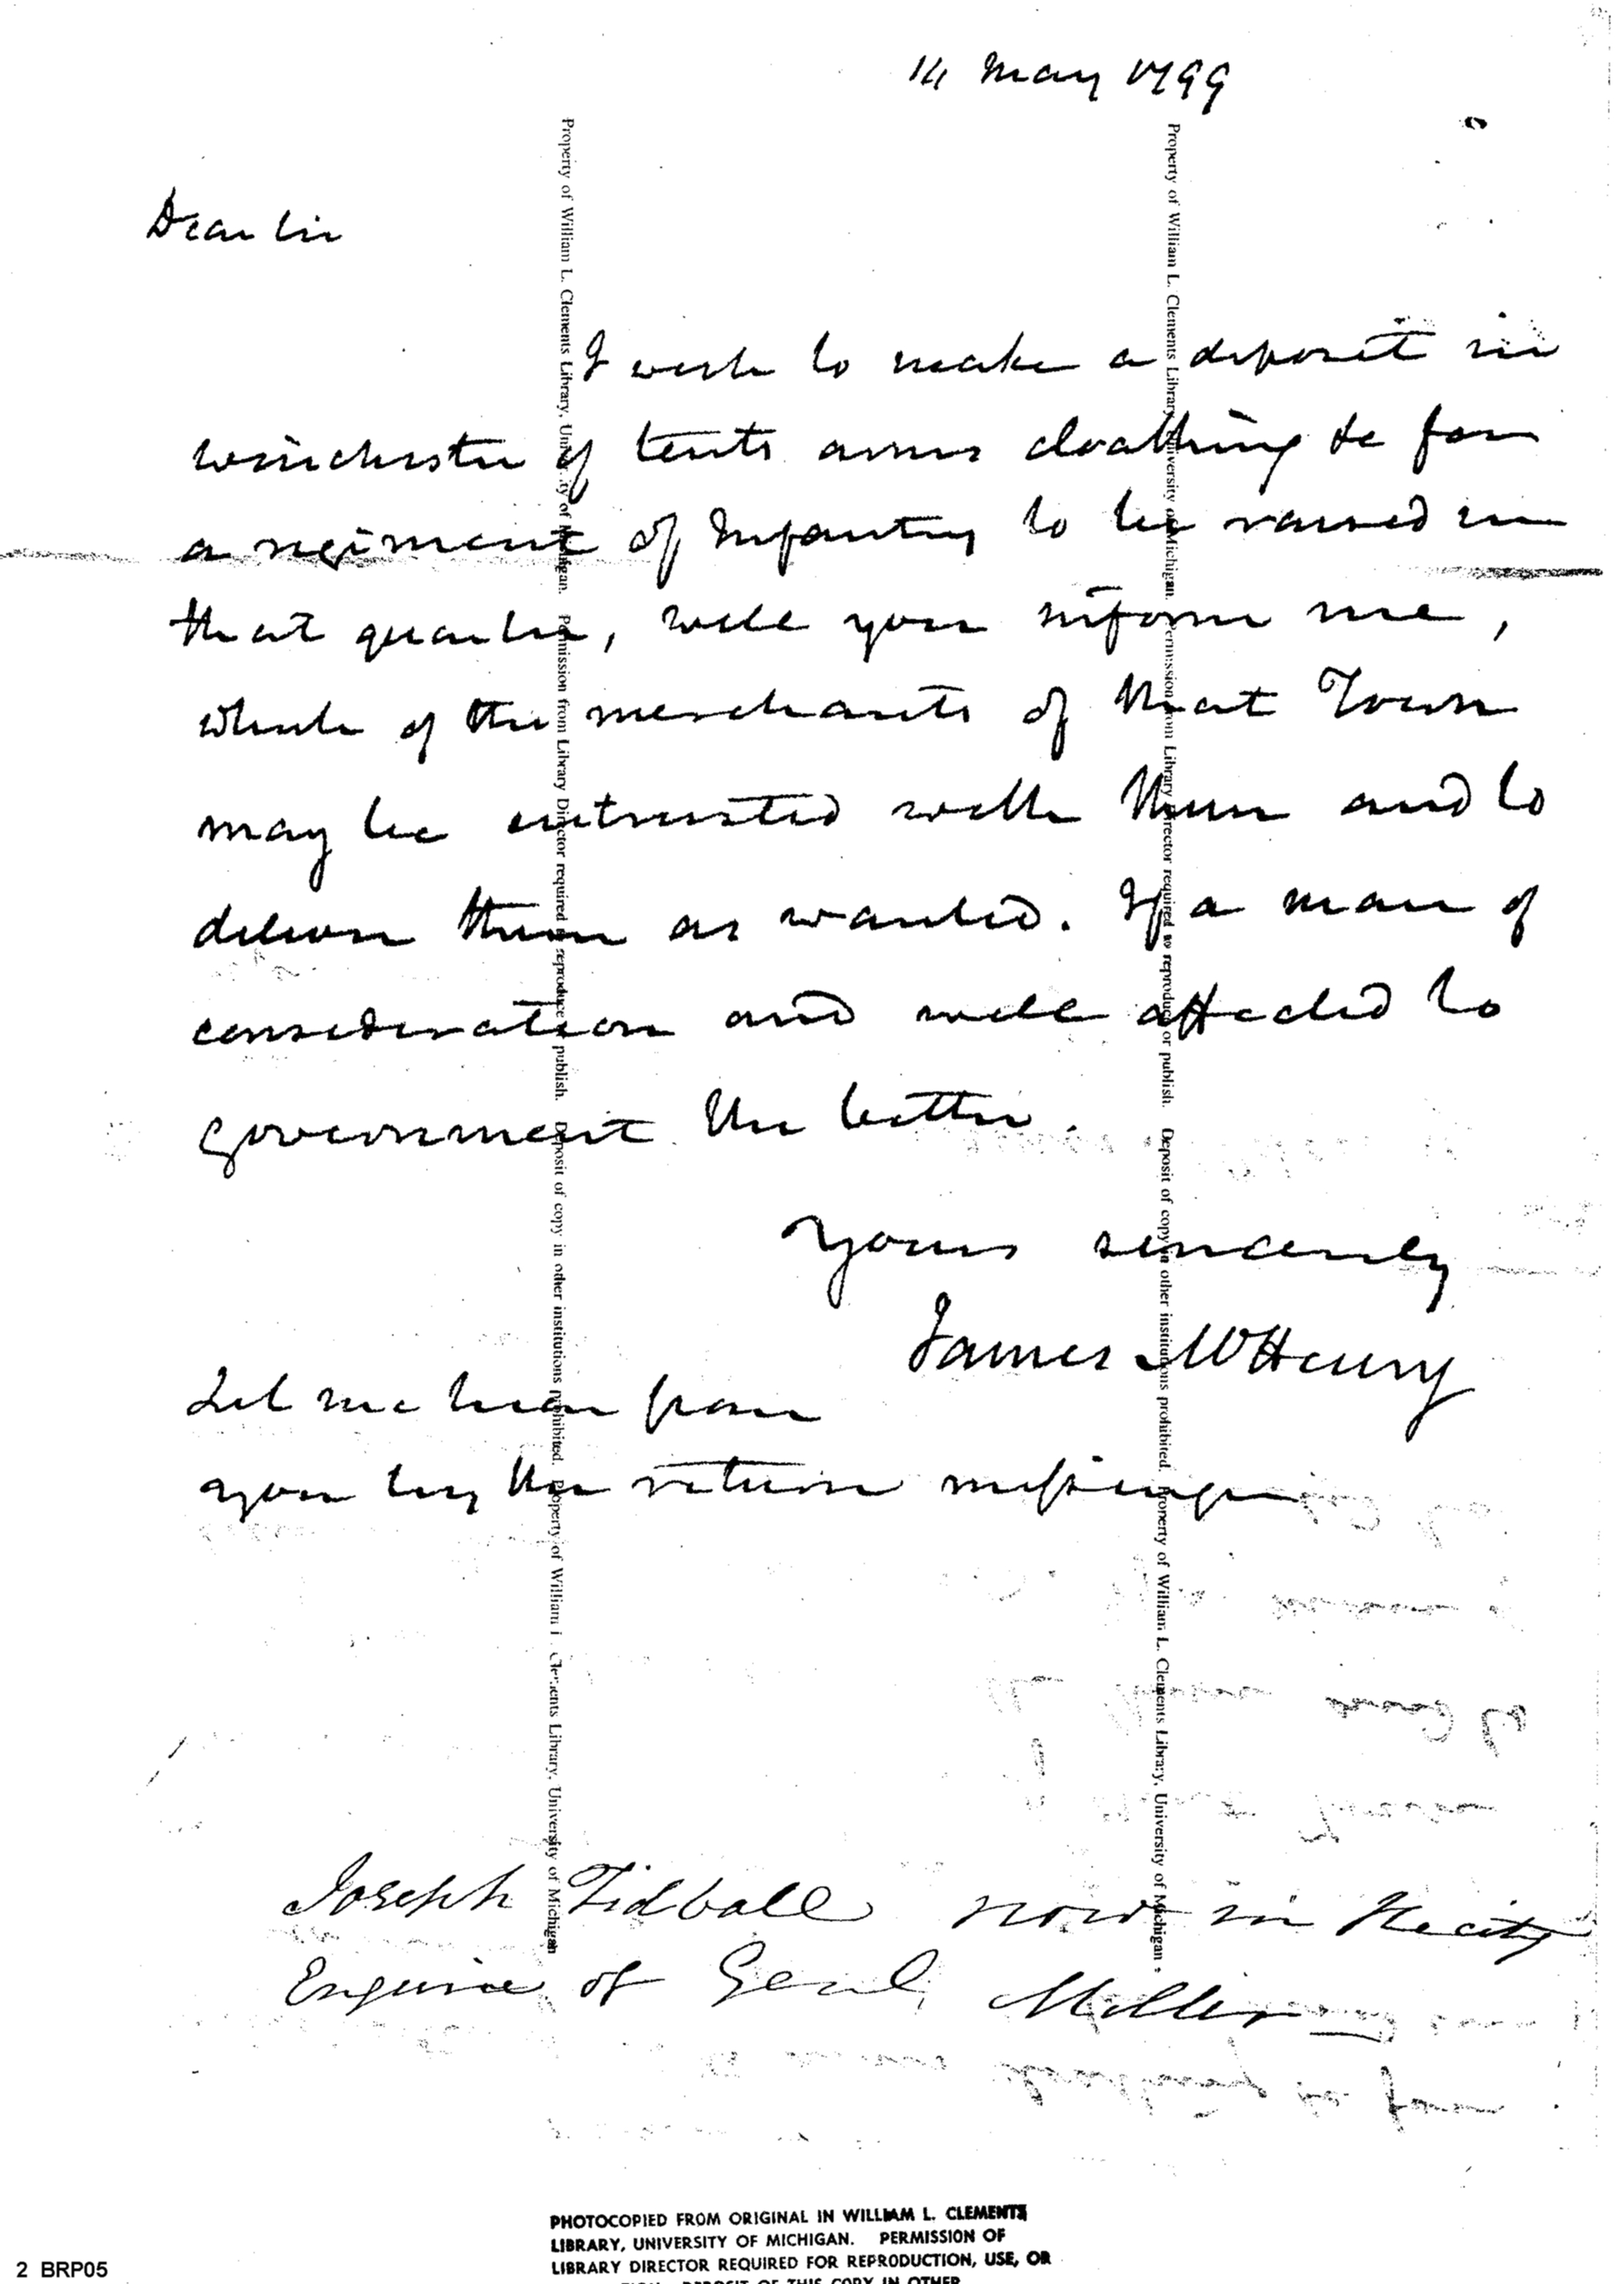 14 May 1799
Dear Sir
I wish to make a deposit in
Winchester of tents arms cloathing &c for
a regiment of Infantry to be raised in
that quarter, will you inform me,
which of the merchants of that Town
may be entrusted with them and to
deliver them as wanted. If a man of
consideration and well affected to
government the better.
Yours sincerely
James McHenry
Let me hear from
you by the return messenger
Joseph Tidball now in the city
Enquire of Genl. Miller
Property of William L. Clements Library, University of Michigan. Permission from Library Director required to reproduce or publish. Deposit of copy in other institutions prohibited. Property of William L. Clements Library, University of Michigan
Property of William L. Clements Library, University of Michigan. Permission from Library Director required to reproduce or publish. Deposit of copy in other institutions prohibited. Property of William L. Clements Library, University of Michigan
PHOTOCOPIED FROM ORIGINAL IN WILLIAM L. CLEMENTS
LIBRARY, UNIVERSITY OF MICHIGAN. PERMISSION OF
LIBRARY DIRECTOR REQUIRED FOR REPRODUCTION, USE, OR
DEPOSIT OF THIS COPY IN OTHER
2 BRP05